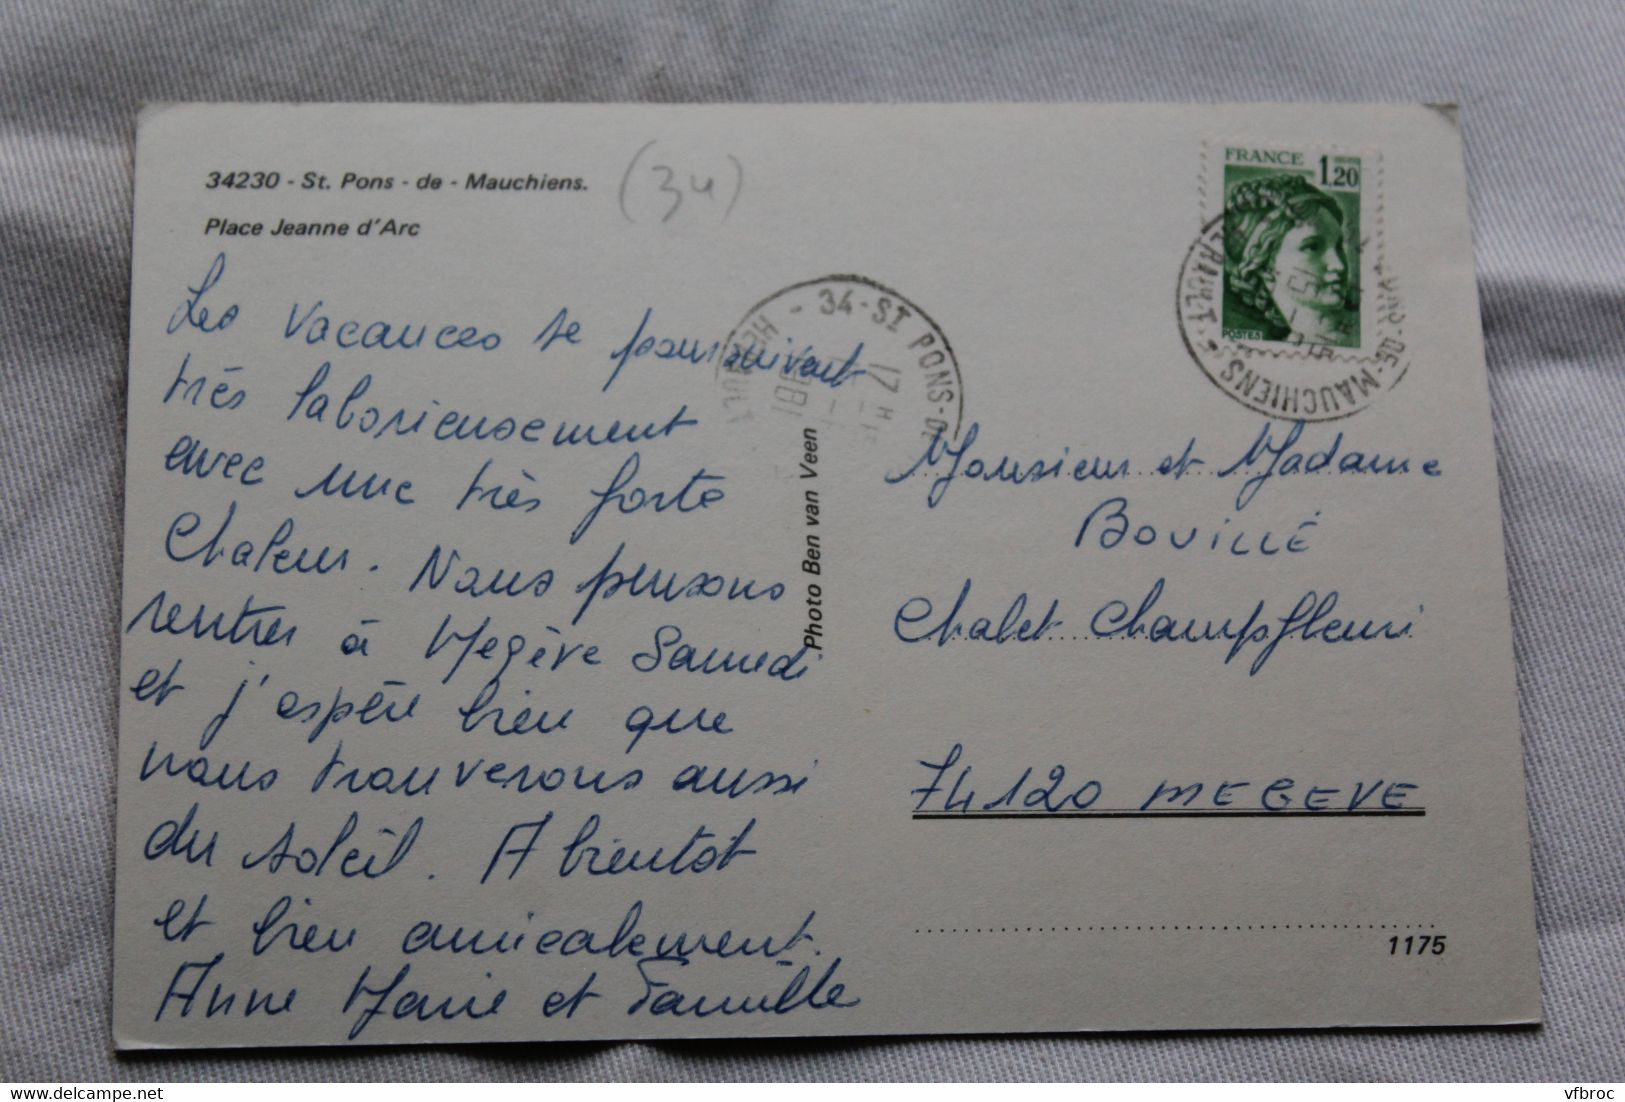 34230 - St. Pons - de - Mauchiens.
Place Jeanne d'Arc
(34)
Les vacances se poursuivent
très laborieusement
avec une très forte
chaleur. Nous pensons
rentrer à Megève Samedi
et j'espère bien que
nous trouverons aussi
du soleil. A bientôt
et bien amicalement.
Anne Marie et Famille
Photo Ben van Veen
34 - ST PONS - DE
HERAULT
17 H
FRANCE 1,20
POSTES
PONS-DE-MAUCHIENS
HERAULT
Monsieur et Madame
BOUILLÉ
Chalet Champfleuri
74120 MEGEVE
1175
vfbroc